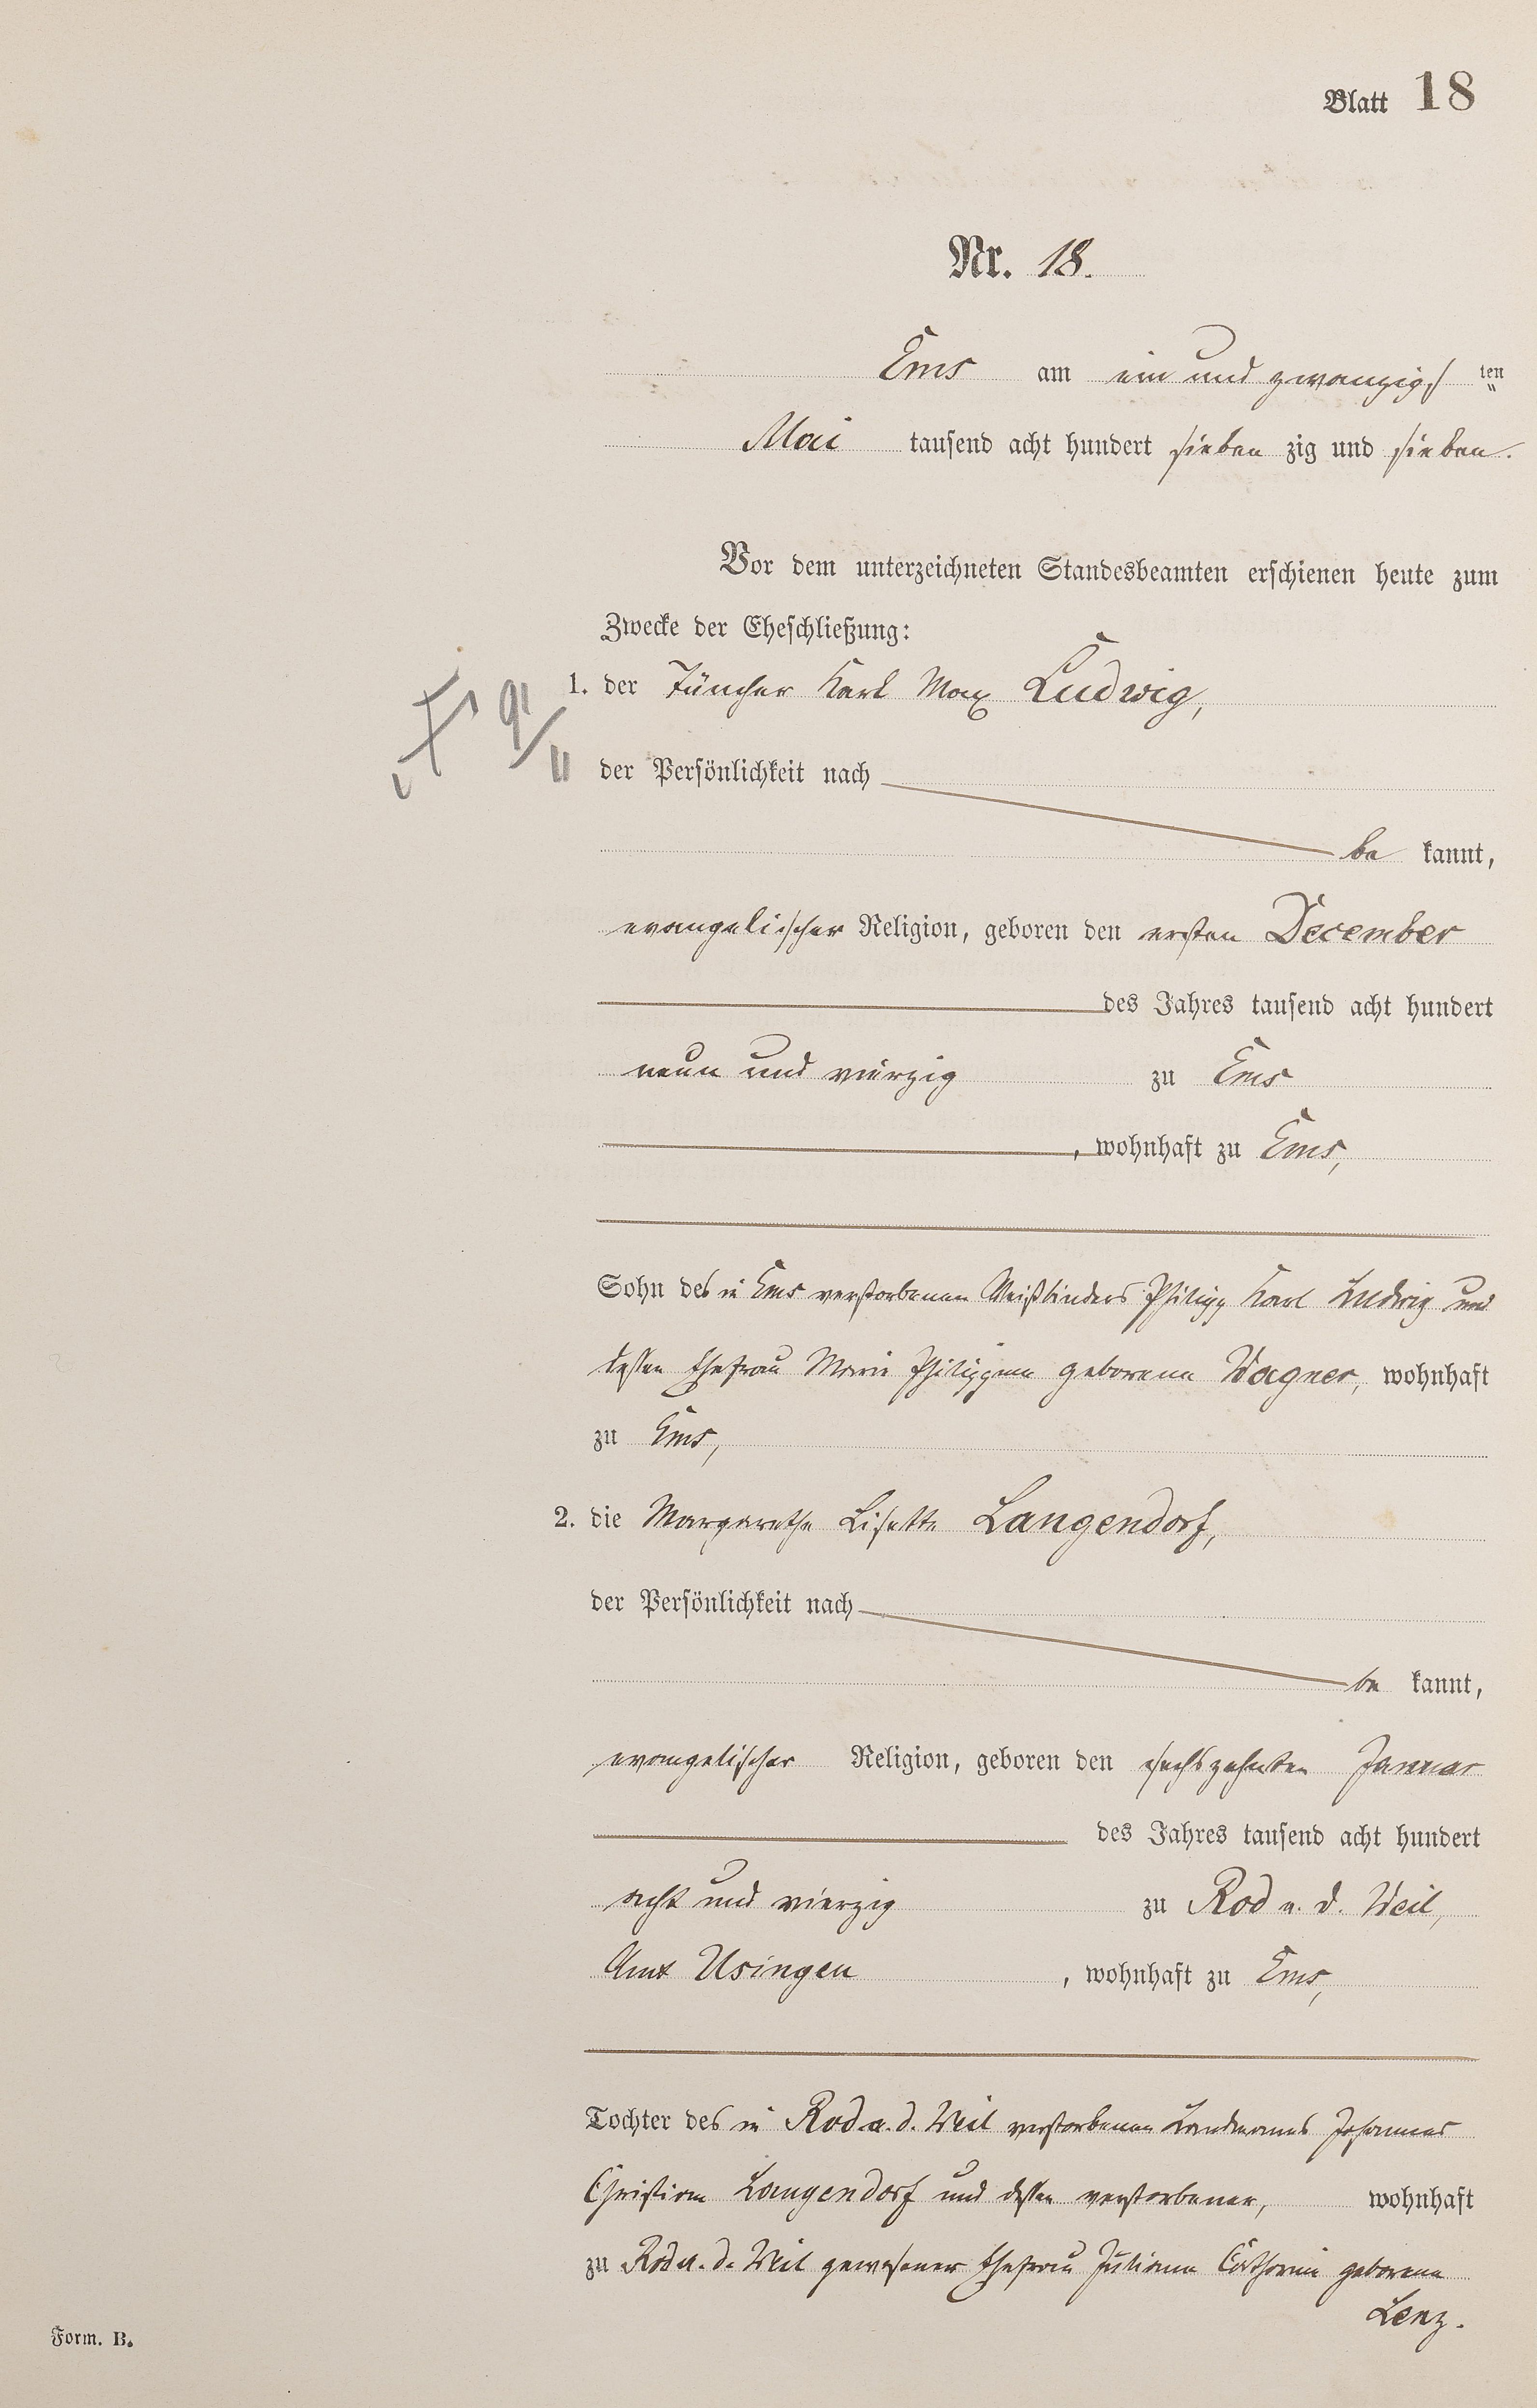 Blatt 18
Nr. 18.
Ems am ein und zwanzigsten
Mai tausend acht hundert sieben zig und sieben.
Vor dem unterzeichneten Standesbeamten erschienen heute zum
Zwecke der Eheschließung:
1. der Tüncher Karl Max Ludwig,
der Persönlichkeit nach
be kannt,
evangelischer Religion, geboren den ersten December
des Jahres tausend acht hundert
neun und vierzig zu Ems
, wohnhaft zu Ems,
Sohn des in Ems verstorbenen Weißbinders Philipp Karl Ludwig und
dessen Ehefrau Marie Philippine geborene Wagner, wohnhaft
zu Ems,
2. die Margarethe Lisette Langendorf,
der Persönlichkeit nach
be kannt,
evangelischer Religion, geboren den sechszehnten Januar
des Jahres tausend acht hundert
acht und vierzig zu Rod a. d. Weil,
Amt Usingen , wohnhaft zu Ems,
Tochter des in Rod a. d. Weil verstorbenen Landmanns Johannes
Christian Langendorf und dessen verstorbener, wohnhaft
zu Rod a. d. Weil gewesener Ehefrau Juliane Catharine geborene
Lenz.
Form. B.